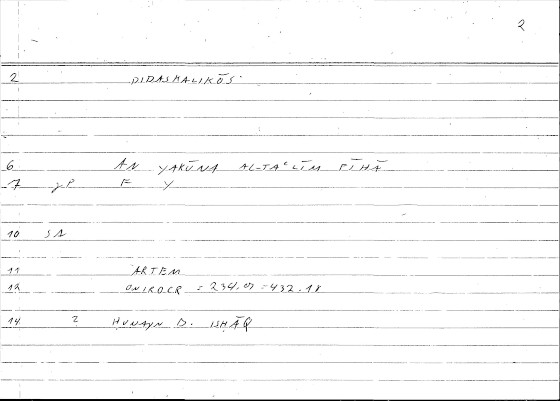 2
2 DIDASKALIKŌS
6 AN YAKŪNA ALTAʿLĪM FĪHĀ
7 gP F Y
10 SA
11 ARTEM
13 ONIROCR = 234.07 = 432.18
14 2 ḤUNAYN B. ISḤĀQ